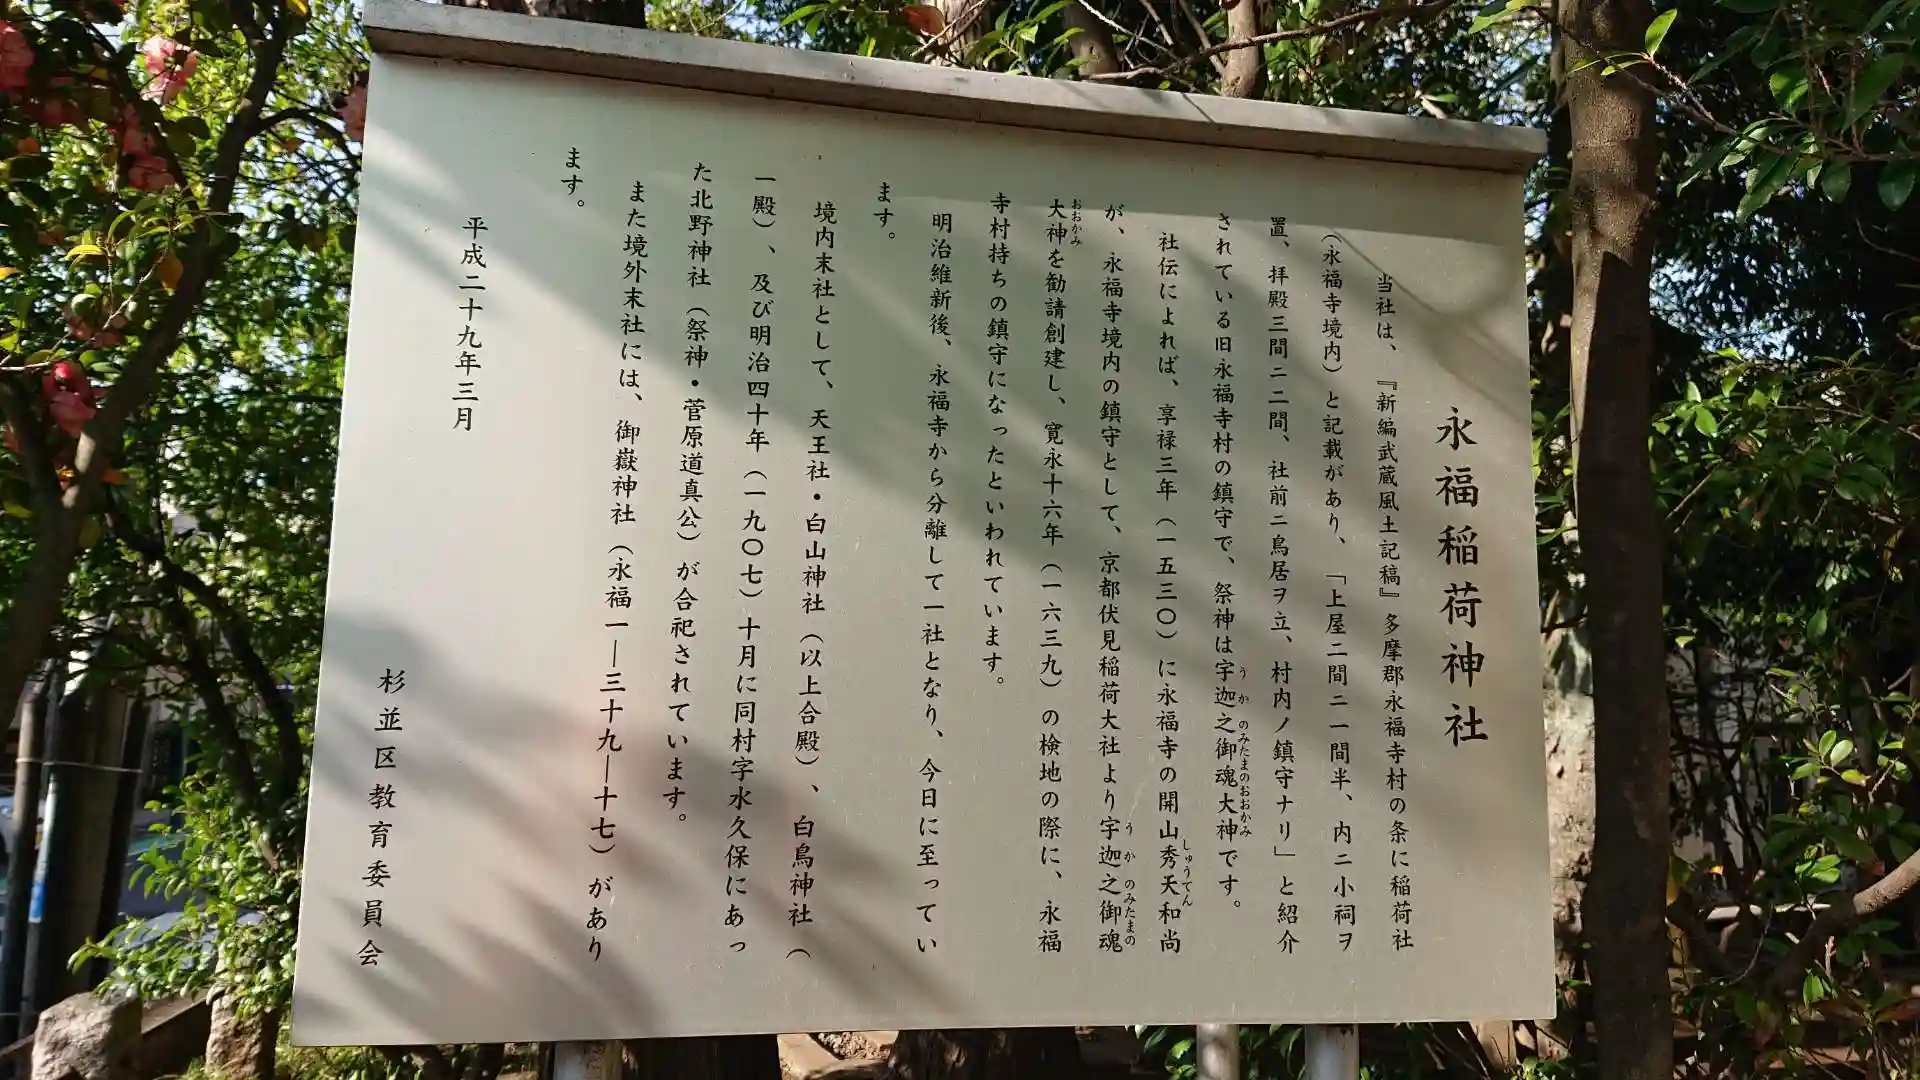 永福稲荷神社
当社は、『新編武蔵風土記稿』多摩郡永福寺村の条に稲荷社
(永福寺境内)と記載があり、「上屋二間ニ一間半、内ニ小祠ヲ
置、拝殿三間ニ二間、社前ニ鳥居ヲ立、村内ノ鎮守ナリ」と紹介
されている旧永福寺村の鎮守で、祭神は宇迦之御魂大神です。
うかのみたまのおおかみ
社伝によれば、享禄三年(一五三〇)に永福寺の開山秀天和尚
しゅうてん
が、永福寺境内の鎮守として、京都伏見稲荷大社より宇迦之御魂
うかのみたまの
大神を勧請創建し、寛永十六年(一六三九)の検地の際に、永福
おおかみ
寺村持ちの鎮守になったといわれています。
明治維新後、永福寺から分離して一社となり、今日に至ってい
ます。
境内末社として、天王社・白山神社(以上合殿)、白鳥神社(
一殿)、及び明治四十年(一九〇七)十月に同村字水久保にあっ
た北野神社(祭神・菅原道真公)が合祀されています。
また境外末社には、御嶽神社(永福一―三十九―十七)があり
ます。
平成二十九年三月
杉並区教育委員会